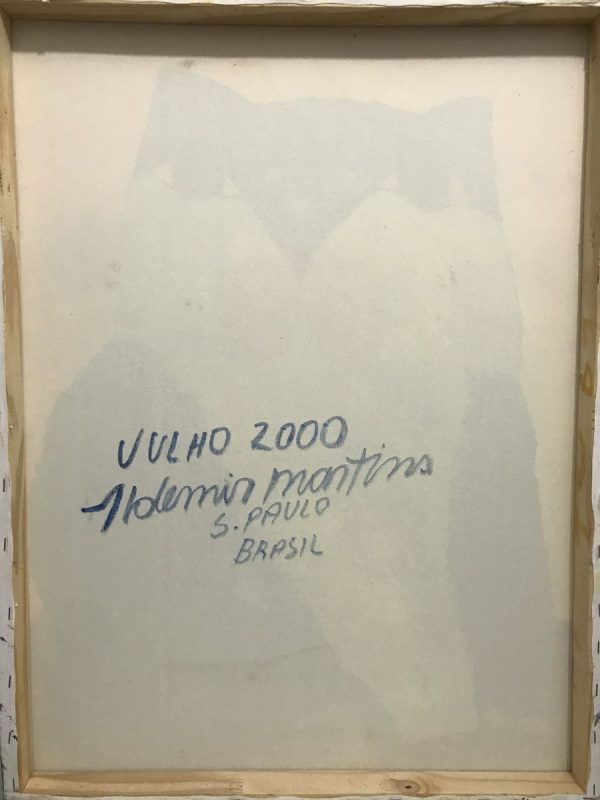 JULHO 2000
Aldemir Martins
S. PAULO
BRASIL